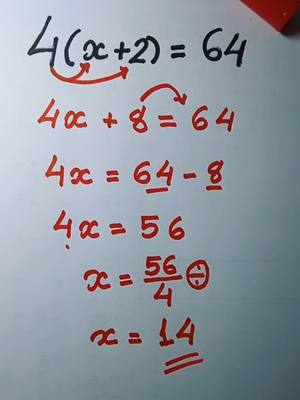 4(x+2) = 64
4x + 8 = 64
4x = 64 - 8
4x = 56
x = 56/4 ÷
x = 14